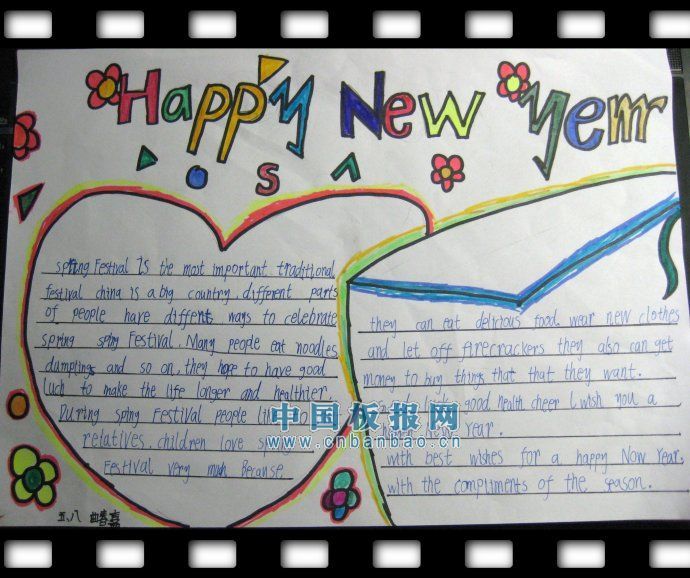 Happy New Yemr
s
spring Festival Is the most important traditional
festival china is a big country different parts
of people have different ways to celebrate
spring sping Festival. Many people eat noodles
dumplings and so on, they hope to have good
luck to make the life longer and healthier
During sping Festival people
relatives. children love
Festival very much Because
they can eat delicious food wear new clothes
and let off firecrackers they also can get
money to buy things that that they want.
good health cheer I wish you a
Year.
with best wishes for a happy Now Year,
with the compliments of the season.
中国板报网
www.cnbanbao.cn
五、八